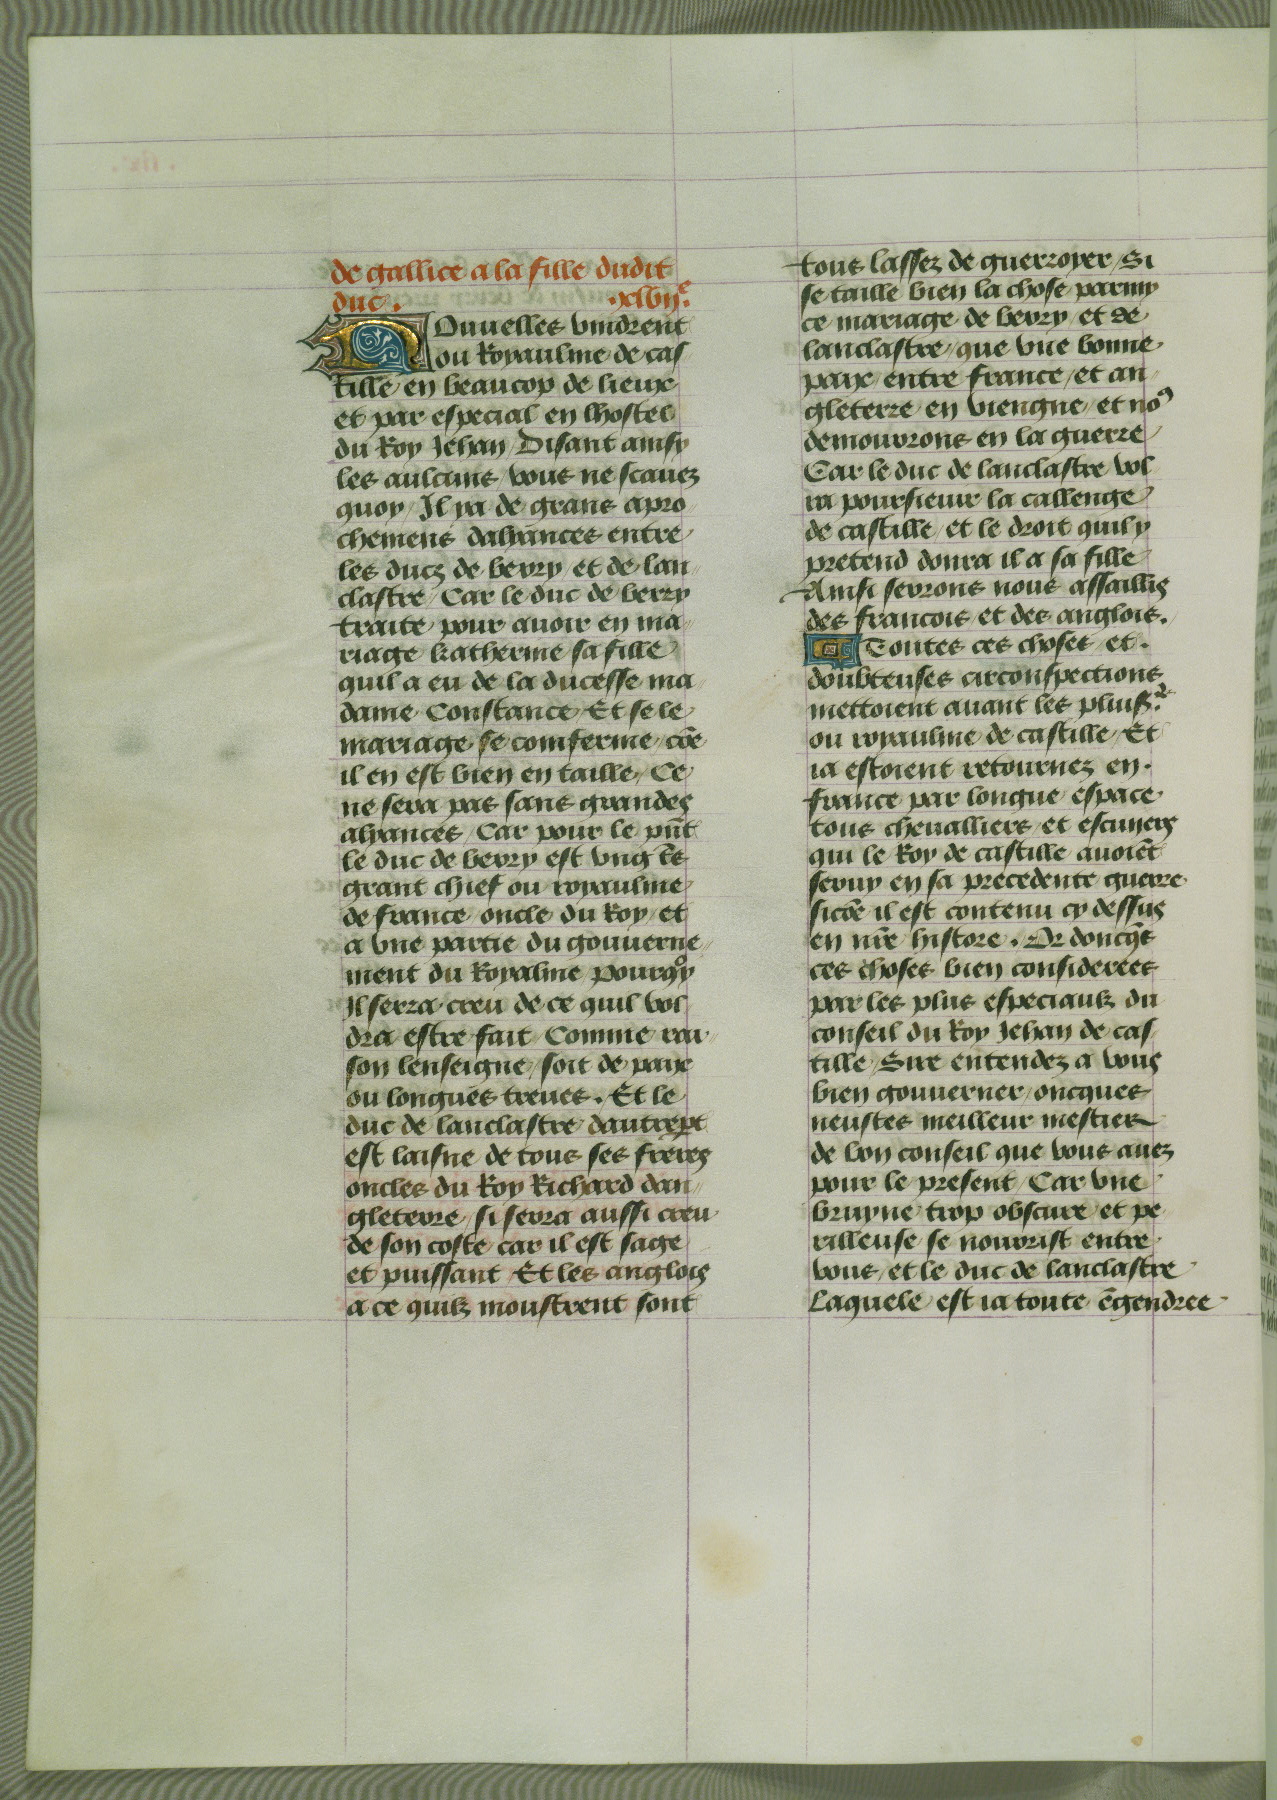 de gallice a la fille dudit
duc. .xlvij.e
Nouuelles vindrent
ou Royaulme de cas
tille en beaucop de lieux
et par especial en lhostel
du Roy Jehan Disant ainsy
les aulcuns vous ne scauez
quoy Il ya de grans apro
chemens dalyances entre
les ducz de berry et de lan
clastre Car le duc de berry
traite pour auoir en ma
riage katherine sa fille
quil a eu de la ducesse ma
dame Constance Et se le
mariage se comferme cõe
il en est bien en taille Ce
ne sera pas sans grandes
alyances Car pour le pñt
le duc de berry est vng tẽs
grant chief ou royaulme
de france oncle du Roy et
a vne partie du gouuerne
ment du Royalme pourqoy
Il serra creu de ce quil vol
dra estre fait Comme rai
son lenseigne soit de paix
ou longues treues. Et le
duc de lanclastre dautrept
est laisne de tous ses freres
oncles du Roy Richard dan
gleterre si serra aussi creu
de son coste car il est sage
et puissant Et les anglois
a ce quilz moustrent sont
tous lassez de guerroyer Si
se taille bien la chose parmy
ce mariage de berry et de
lanclastre que vne bonne
paix entre france et an
gleterre en viengne et noꝰ
demourrons en la guerre
Car le duc de lanclastre vol
ra poursieuir la callenge
de castille et le droit quil y
pretend donra il a sa fille
Ainsi serrons nous assaillis
des francois et des anglois.
Toutes ces choses et
doubteuses circonspections
mettoient auant les pluisrs
ou royaulme de castille Et
ia estoient retournez en
france par longue espace
tous cheualliers et escuyers
qui le Roy de castille auoiẽt
seruy en sa precedente guerre
sicõe il est contenu cy dessus
en nr̃e histore. Or doncq̃s
ces choses bien considerees
par les plus especiaulz du
conseil du Roy Jehan de cas
tille Sire entendez a vous
bien gouuerner oncques
neustes meilleur mestier
de bon conseil que vous auez
pour le present Car vne
bruyne trop obscure et pe
rilleuse se nourrist entre
vous et le duc de lanclastre
Laquele est ia toute ẽgendree